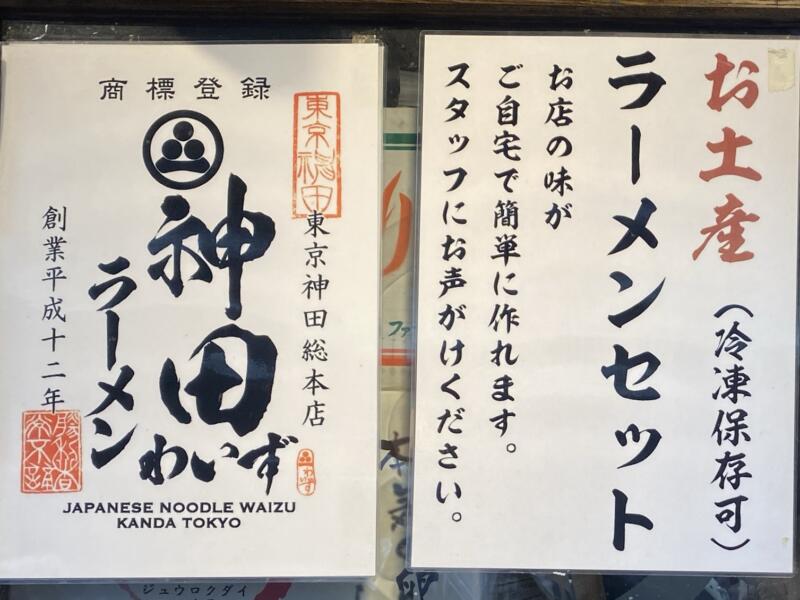 商標登録
東京神田
東京神田総本店
神田
ラーメン
わいず
創業平成十二年
わいず
JAPANESE NOODLE WAIZU
KANDA TOKYO
お土産(冷凍保存可)
ラーメンセット
お店の味が
ご自宅で簡単に作れます。
スタッフにお声がけください。
ファ
ジュウロクダイ